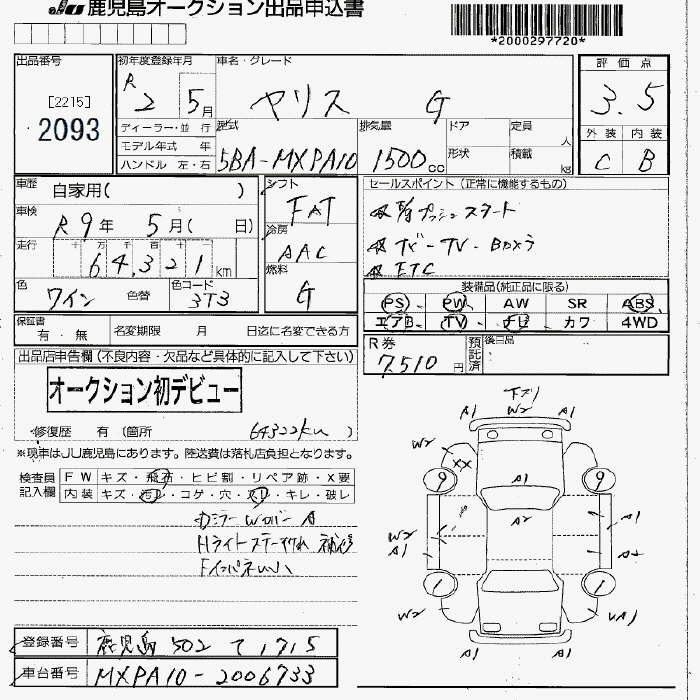 JU 鹿児島オークション出品申込書
*2000297720*
出品番号
[2215]
2093
初年度登録年月
R 2 5月
車名・グレード
ヤリス G
評価点
3.5
外装 内装
C B
ディーラー・並行
モデル年式 年
ハンドル 左・右
型式
5BA-MXPA10
排気量
1500cc
ドア
形状
定員 人
積載 kg
車歴 自家用( )
車検 R 9年 5月( 日)
走行 十 万 千 百 十 一
64,321 km
色 ワイン 色替 色コード 3T3
シフト
FAT
冷房
AAC
燃料
G
セールスポイント(正常に機能するもの)
プッシュスタート
ETC
装備品(純正品に限る)
PS PW AW SR ABS
エアB TV ナビ カワ 4WD
保証書
有・無
名変期限 月 日迄に名変できる方
R券
7,510円
預託済
後日品
出品店申告欄(不良内容・欠品など具体的に記入して下さい)
オークション初デビュー
修復歴 有 (箇所 )
64322km
※現車はJU鹿児島にあります。陸送費は落札店負担となります。
検査員記入欄
FW キズ・飛石・ヒビ割・リペア跡・X要
内装 キズ・汚レ・コゲ・穴・スレ・キレ・破レ
下スリ
A1 W2 A1
W2
XX
9 9
A1
A2
A1
W2
A1
A2
1 1
W2
UA1
A1 A1
登録番号 鹿児島 502 て 1715
車台番号 MXPA10-2006733